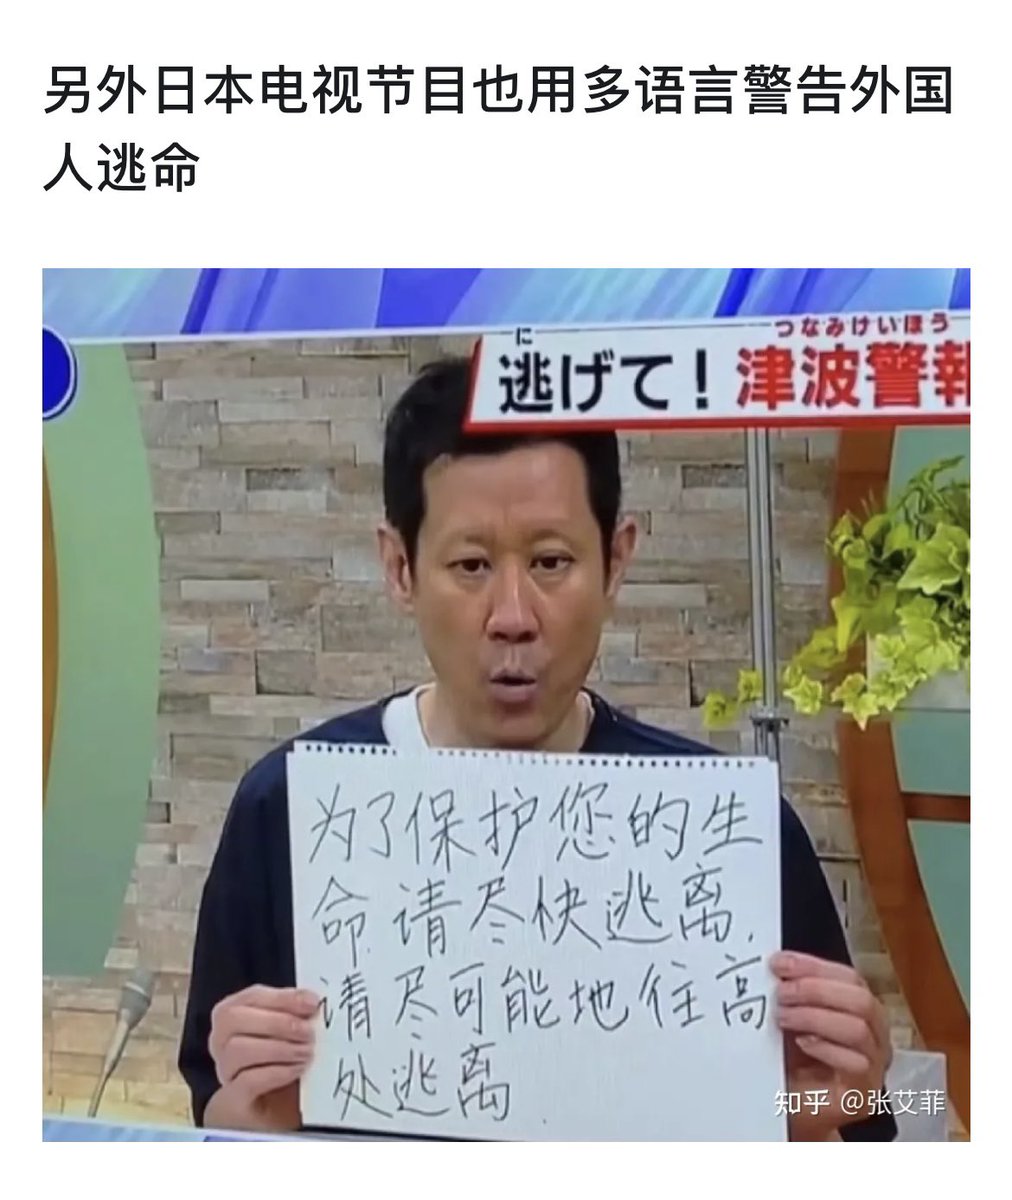 另外日本电视节目也用多语言警告外国
人逃命
に
つなみけいほう
逃げて！津波警報
为了保护您的生
命.请尽快逃离.
请尽可能地往高
处逃离.
知乎 @张艾菲